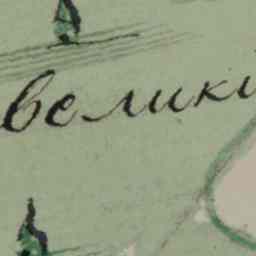 великі